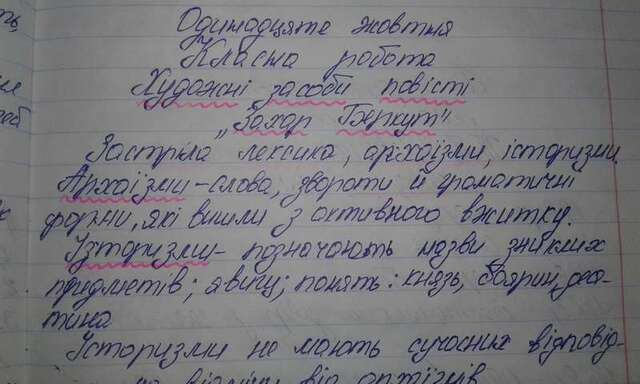 Одинадцяте жовтня
Класна робота
Художні засоби повісті
"Захар Беркут"
Застріла лексика, архаїзми, історизми
Архаїзми - слова, звороти й граматичні
форми, які вийшли з активного вжитку.
Історизми - позначають назви зниклих
предметів; явищ; понять: князь, боярин, деся-
тина
Історизми не мають сучасних відповід-
від